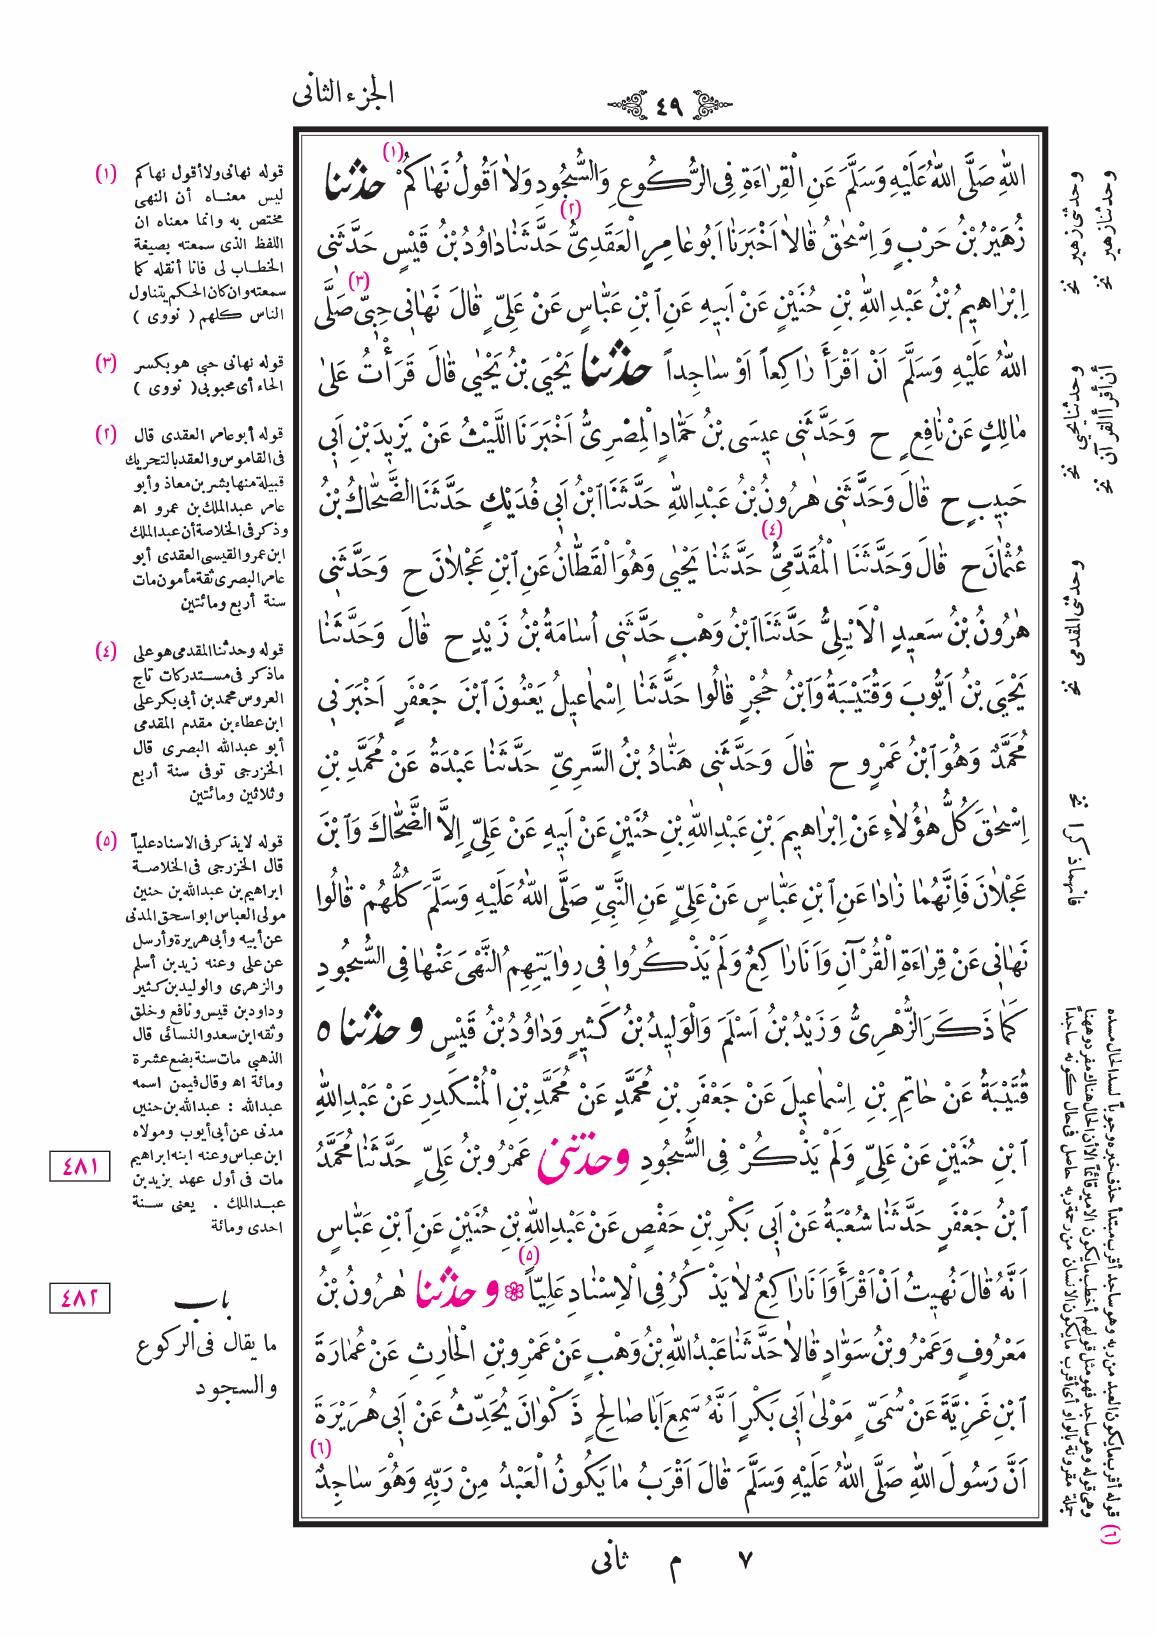 الجزء الثانى
٤٩
اللهِ صَلَّى اللهُ عَلَيْهِ وَسَلَّمَ عَنِ الْقِرَاءَةِ فِى الرُّكُوعِ وَالسُّجُودِ وَلَا اَقُولُ نَهَاكُمْ (١) حدثنا
زُهَيْرُ بْنُ حَرْبٍ وَاِسْحٰقُ قَالَا اَخْبَرَنَا اَبُو عَامِرٍ الْعَقَدِىُّ (٢) حَدَّثَنَا دَاوُدُ بْنُ قَيْسٍ حَدَّثَنِى
اِبْرَاهِيمُ بْنُ عَبْدِ اللهِ بْنِ حُنَيْنٍ عَنْ اَبِيهِ عَنِ ابْنِ عَبَّاسٍ عَنْ عَلِىٍّ قَالَ نَهَانِى حِبِّى (٣) صَلَّى
اللهُ عَلَيْهِ وَسَلَّمَ اَنْ اَقْرَأَ رَاكِعاً اَوْ سَاجِداً حدثنا يَحْيَى بْنُ يَحْيٰى قَالَ قَرَأْتُ عَلىٰ
مَالِكٍ عَنْ نَافِعٍ ح وَحَدَّثَنِى عِيسَى بْنُ حَمَّادٍ الْمِصْرِىُّ اَخْبَرَنَا اللَّيْثُ عَنْ يَزِيدَ بْنِ اَبِى
حَبِيبٍ ح قَالَ وَحَدَّثَنِى هٰرُونُ بْنُ عَبْدِ اللهِ حَدَّثَنَا ابْنُ اَبِى فُدَيْكٍ حَدَّثَنَا الضَّحَّاكُ بْنُ
عُثْمَانَ ح قَالَ وَحَدَّثَنَا الْمُقَدَّمِىُّ (٤) حَدَّثَنَا يَحْيٰى وَهُوَ الْقَطَّانُ عَنِ ابْنِ عَجْلَانَ ح وَحَدَّثَنِى
هٰرُونُ بْنُ سَعِيدٍ الْاَيْلِىُّ حَدَّثَنَا ابْنُ وَهْبٍ حَدَّثَنِى اُسَامَةُ بْنُ زَيْدٍ ح قَالَ وَحَدَّثَنَا
يَحْيَى بْنُ اَيُّوبَ وَقُتَيْبَةُ وَابْنُ حُجْرٍ قَالُوا حَدَّثَنَا اِسْمَاعِيلُ يَعْنُونَ ابْنَ جَعْفَرٍ اَخْبَرَنِى
مُحَمَّدٌ وَهُوَ ابْنُ عَمْرٍو ح قَالَ وَحَدَّثَنِى هَنَّادُ بْنُ السَّرِىِّ حَدَّثَنَا عَبْدَةُ عَنْ مُحَمَّدِ بْنِ
اِسْحٰقَ كُلُّ هٰؤُلَاءِ عَنْ اِبْرَاهِيمَ بْنِ عَبْدِ اللهِ بْنِ حُنَيْنٍ عَنْ اَبِيهِ عَنْ عَلِىٍّ اِلَّا الضَّحَّاكَ وَابْنَ
عَجْلَانَ فَاِنَّهُمَا زَادَا عَنِ ابْنِ عَبَّاسٍ عَنْ عَلِىٍّ عَنِ النَّبِىِّ صَلَّى اللهُ عَلَيْهِ وَسَلَّمَ كُلُّهُمْ قَالُوا
نَهَانِى عَنْ قِرَاءَةِ الْقُرْآنِ وَاَنَا رَاكِعٌ وَلَمْ يَذْكُرُوا فِى رِوَايَتِهِمُ النَّهْىَ عَنْهَا فِى السُّجُودِ
كَمَا ذَكَرَ الزُّهْرِىُّ وَزَيْدُ بْنُ اَسْلَمَ وَالْوَلِيدُ بْنُ كَثِيرٍ وَدَاوُدُ بْنُ قَيْسٍ وحدثنا ه
قُتَيْبَةُ عَنْ حَاتِمِ بْنِ اِسْمَاعِيلَ عَنْ جَعْفَرِ بْنِ مُحَمَّدٍ عَنْ مُحَمَّدِ بْنِ الْمُنْكَدِرِ عَنْ عَبْدِ اللهِ
ابْنِ حُنَيْنٍ عَنْ عَلِىٍّ وَلَمْ يَذْكُرْ فِى السُّجُودِ وحدثنى عَمْرُو بْنُ عَلِىٍّ حَدَّثَنَا مُحَمَّدُ
ابْنُ جَعْفَرٍ حَدَّثَنَا شُعْبَةُ عَنْ اَبِى بَكْرِ بْنِ حَفْصٍ عَنْ عَبْدِ اللهِ بْنِ حُنَيْنٍ عَنِ ابْنِ عَبَّاسٍ
اَنَّهُ قَالَ نُهِيتُ اَنْ اَقْرَأَ وَاَنَا رَاكِعٌ لَا يَذْكُرُ فِى الْاِسْنَادِ عَلِيّاً (٥) وحدثنا هٰرُونُ بْنُ
مَعْرُوفٍ وَعَمْرُو بْنُ سَوَّادٍ قَالَا حَدَّثَنَا عَبْدُ اللهِ بْنُ وَهْبٍ عَنْ عَمْرِو بْنِ الْحَارِثِ عَنْ عُمَارَةَ
ابْنِ غَزِيَّةَ عَنْ سُمَىٍّ مَوْلٰى اَبِى بَكْرٍ اَنَّهُ سَمِعَ اَبَا صَالِحٍ ذَكْوَانَ يُحَدِّثُ عَنْ اَبِى هُرَيْرَةَ
اَنَّ رَسُولَ اللهِ صَلَّى اللهُ عَلَيْهِ وَسَلَّمَ قَالَ اَقْرَبُ مَا يَكُونُ الْعَبْدُ مِنْ رَبِّهِ وَهُوَ سَاجِدٌ (٦)
٧ م ثانى
وحدثنا زهير نخ
وحدثنى زهير نخ
أن أقرأ القرآن نخ
وحدثنا يحيى نخ
وحدثنى المقدمى نخ
فانهما ذكرا نخ
(٦) قوله أقرب مايكون العبد من ربه وهو ساجد أقرب مبتدأ حذف خبره وجوباً لسد الحال مسده
وهى قوله وهو ساجد فهو مثل قولهم أخطب مايكون الامير قائماً الا أن الحال هناك مفرد وههنا
جملة مقرونة بالواو أى أقرب مايكون الانسان من رحمة ربه حاصل فى حال كونه ساجداً
(١) قوله نهانى ولا أقول نهاكم
ليس معناه أن النهى
مختص به وانما معناه ان
اللفظ الذى سمعته بصيغة
الخطاب لى فانا أنقله كما
سمعته وان كان الحكم يتناول
الناس كلهم ( نووى )
(٣) قوله نهانى حبى هو بكسر
الحاء أى محبوبى ( نووى )
(٢) قوله أبو عامر العقدى قال
فى القاموس والعقد بالتحريك
قبيلة منها بشر بن معاذ وأبو
عامر عبدالملك بن عمرو اه
وذكر فى الخلاصة أن عبدالملك
ابن عمرو القيسى العقدى أبو
عامر البصرى ثقة مأمون مات
سنة أربع ومائتين
(٤) قوله وحدثنا المقدمى هو على
ماذكر فى مستدركات تاج
العروس محمد بن أبى بكر على
ابن عطاء بن مقدم المقدمى
أبو عبدالله البصرى قال
الخزرجى توفى سنة أربع
وثلاثين ومائتين
(٥) قوله لايذكر فى الاسناد علياً
قال الخزرجى فى الخلاصة
ابراهيم بن عبدالله بن حنين
مولى العباس ابو اسحق المدنى
عن أبيه وأبى هريرة وأرسل
عن على وعنه زيد بن أسلم
والزهرى والوليد بن كثير
وداود بن قيس ونافع وخلق
وثقه ابن سعد والنسائى قال
الذهبى مات سنة بضع عشرة
ومائة اه وقال فيمن اسمه
عبدالله : عبدالله بن حنين
مدنى عن أبى أيوب ومولاه
ابن عباس وعنه ابنه ابراهيم
مات فى أول عهد يزيد بن
عبدالملك . يعنى سنة
احدى ومائة
٤٨١
٤٨٢
باب
ما يقال فى الركوع
والسجود